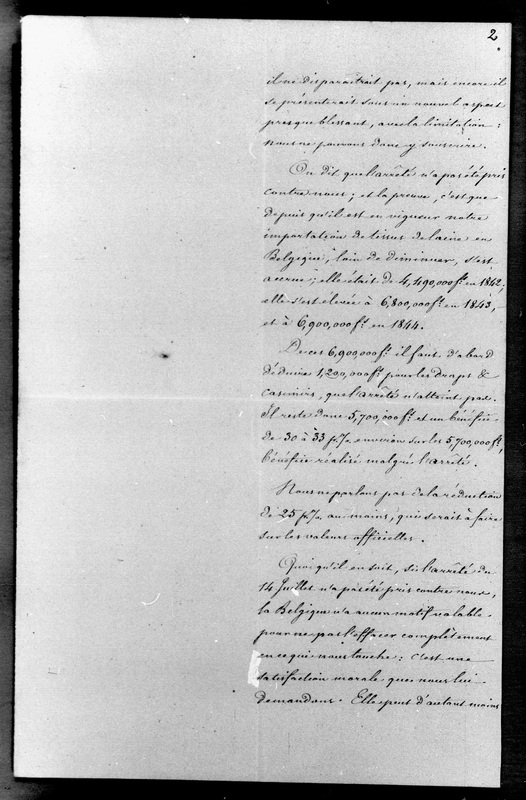 2
il ne disparaîtrait pas, mais encore il
se présenterait sous un nouvel aspect
presque blessant, avec la limitation :
nous ne pouvons donc y souscrire.
On dit que l'arrêté n'a pas été pris
contre nous ; et la preuve, c'est que
depuis qu'il est en vigueur notre
importation de tissus de laine en
Belgique, loin de diminuer, s'est
accrue ; elle était de 4,490,000 f. en 1842,
elle s'est élevée à 6,800,000 f. en 1843,
et à 6,900,000 f. en 1844.
De ces 6,900,000 f. il faut d'abord
déduire 1,200,000 f. pour les draps &
casimirs, que l'arrêté n'atteint pas.
Il reste donc 5,700,000 f. et un bénéfice
de 30 à 33 p.% environ sur les 5,700,000 f.,
bénéfice réalisé malgré l'arrêté.
Nous ne parlons pas de la réduction
de 25 p.% au moins, qui serait à faire
sur les valeurs officielles.
Quoiqu'il en soit, si l'arrêté du
14 Juillet n'a pas été pris contre nous,
la Belgique n'a aucun motif valable
pour ne pas l'effacer complètement
en ce qui nous touche : c'est une
satisfaction morale que nous lui
demandons. Elle peut d'autant moins